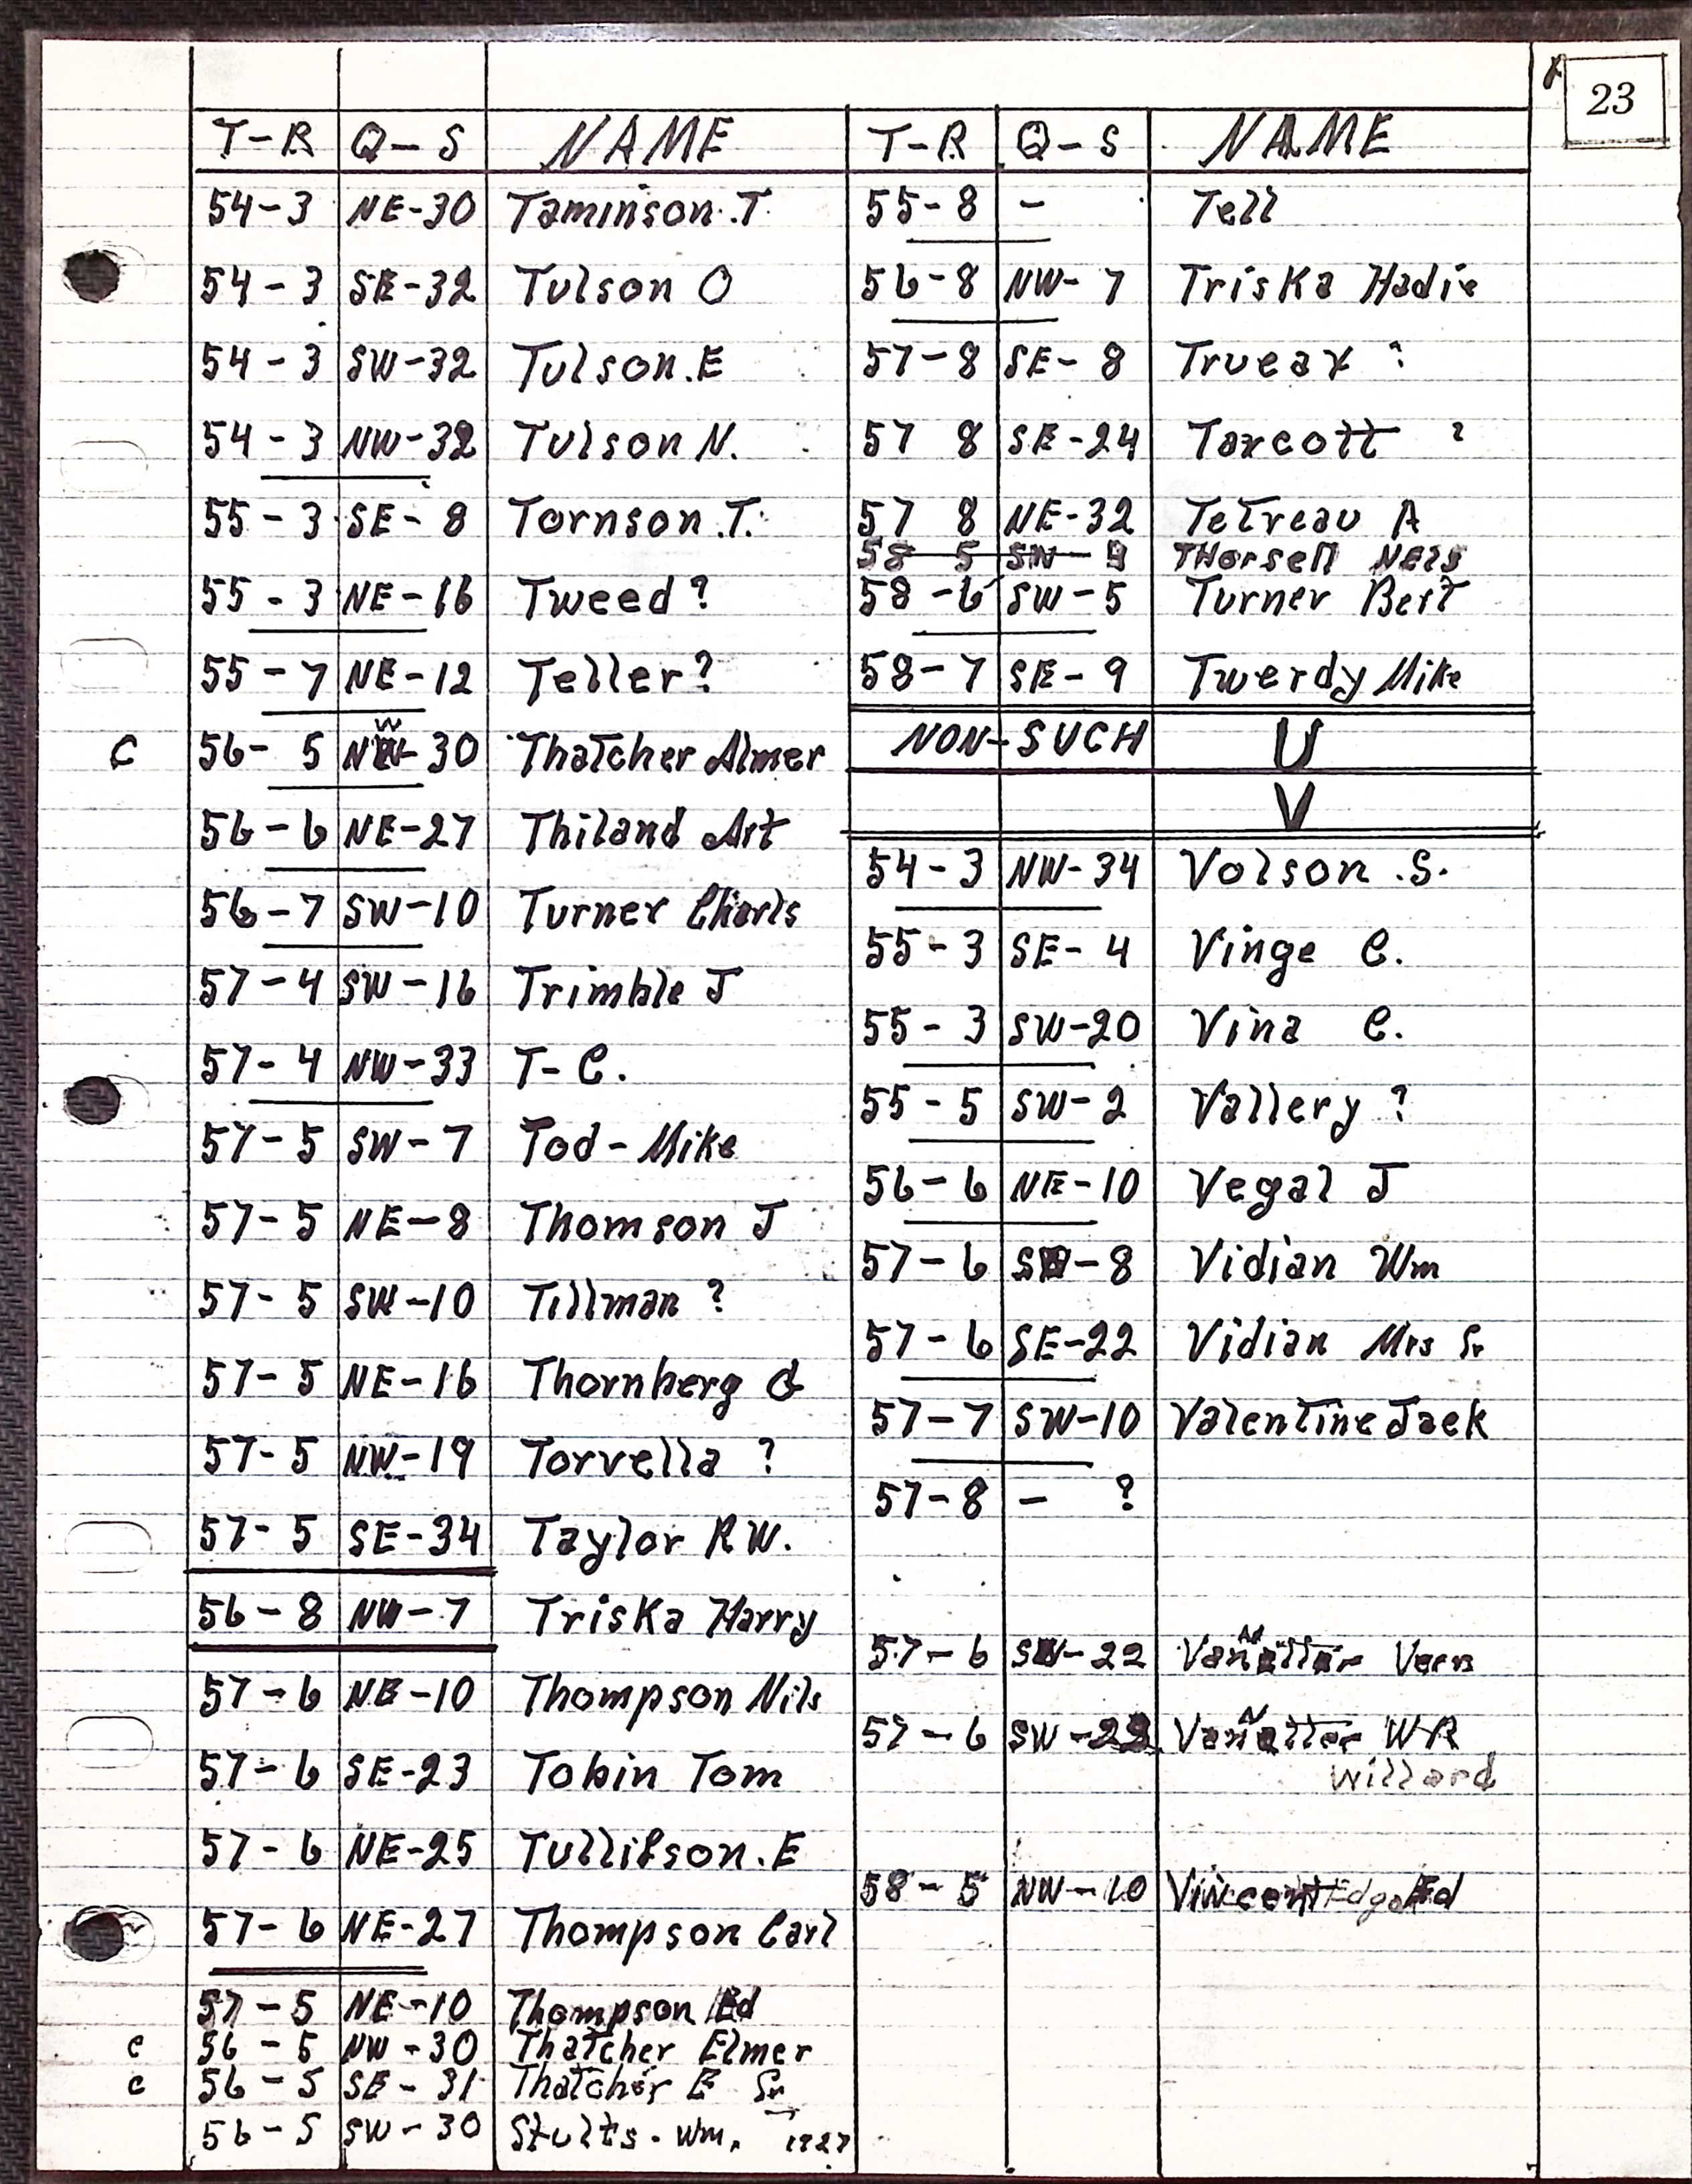 23
T-R Q-S NAME
54-3 NE-30 Taminson.T
54-3 SE-32 Tulson O
54-3 SW-32 Tulson.E
54-3 NW-32 Tulson N.
55-3 SE-8 Tornson.T.
55-3 NE-16 Tweed?
55-7 NE-12 Teller?
C 56-5 NW-30 Thatcher Almer
56-6 NE-27 Thiland Art
56-7 SW-10 Turner Charls
57-4 SW-16 Trimble J
57-4 NW-33 T-C.
57-5 SW-7 Tod-Mike
57-5 NE-8 Thomson J
57-5 SW-10 Tillman ?
57-5 NE-16 Thornberg
57-5 NW-19 Torvella ?
57-5 SE-34 Taylor RW.
56-8 NW-7 Triska Harry
57-6 NE-10 Thompson Nils
57-6 SE-23 Tobin Tom
57-6 NE-25 Tullifson.E
57-6 NE-27 Thompson Carl
57-5 NE-10 Thompson Ed
c 56-5 NW-30 Thatcher Elmer
c 56-5 SE-31 Thatcher E Sr
56-5 SW-30 Stults. Wm. 1927
T-R Q-S NAME
55-8 - Tell
56-8 NW-7 Triska Hadie
57-8 SE-8 Trueax ?
57 8 SE-24 Taxcott ?
57 8 NE-32 Tetreau A
58 5 SW-9 THorsell Nels
58-6 SW-5 Turner Bert
58-7 SE-9 Twerdy Mike
NON-SUCH U
V
54-3 NW-34 Volson .S.
55-3 SE-4 Vinge C.
55-3 SW-20 Vina C.
55-5 SW-2 Vallery ?
56-6 NE-10 Vegal J
57-6 -8 Vidian Wm
57-6 SE-22 Vidian Mrs Sr
57-7 SW-10 Valentine Jack
57-8 - ?
57-6 SW-22 Vern
57-6 SW- WR
Willard
58-5 NW-10 Vincent Ed